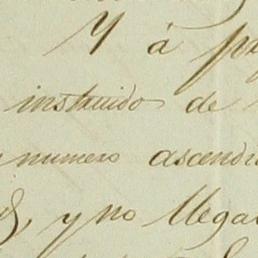 Y à pa
instruido de
numero ascendi
, y no llega